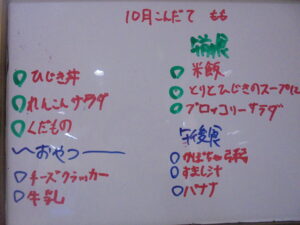 10月こんだて もも
ひじき丼
れんこんサラダ
くだもの
〜おやつ〜
チーズクラッカー
牛乳
前期
米飯
とりとひじきのスープに
ブロッコリーサラダ
午後食
かぼちゃ粥
すまし汁
バナナ